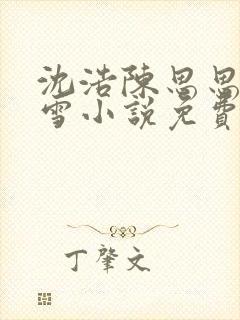 沈浩陳思思
雪小說免費
丁肇文